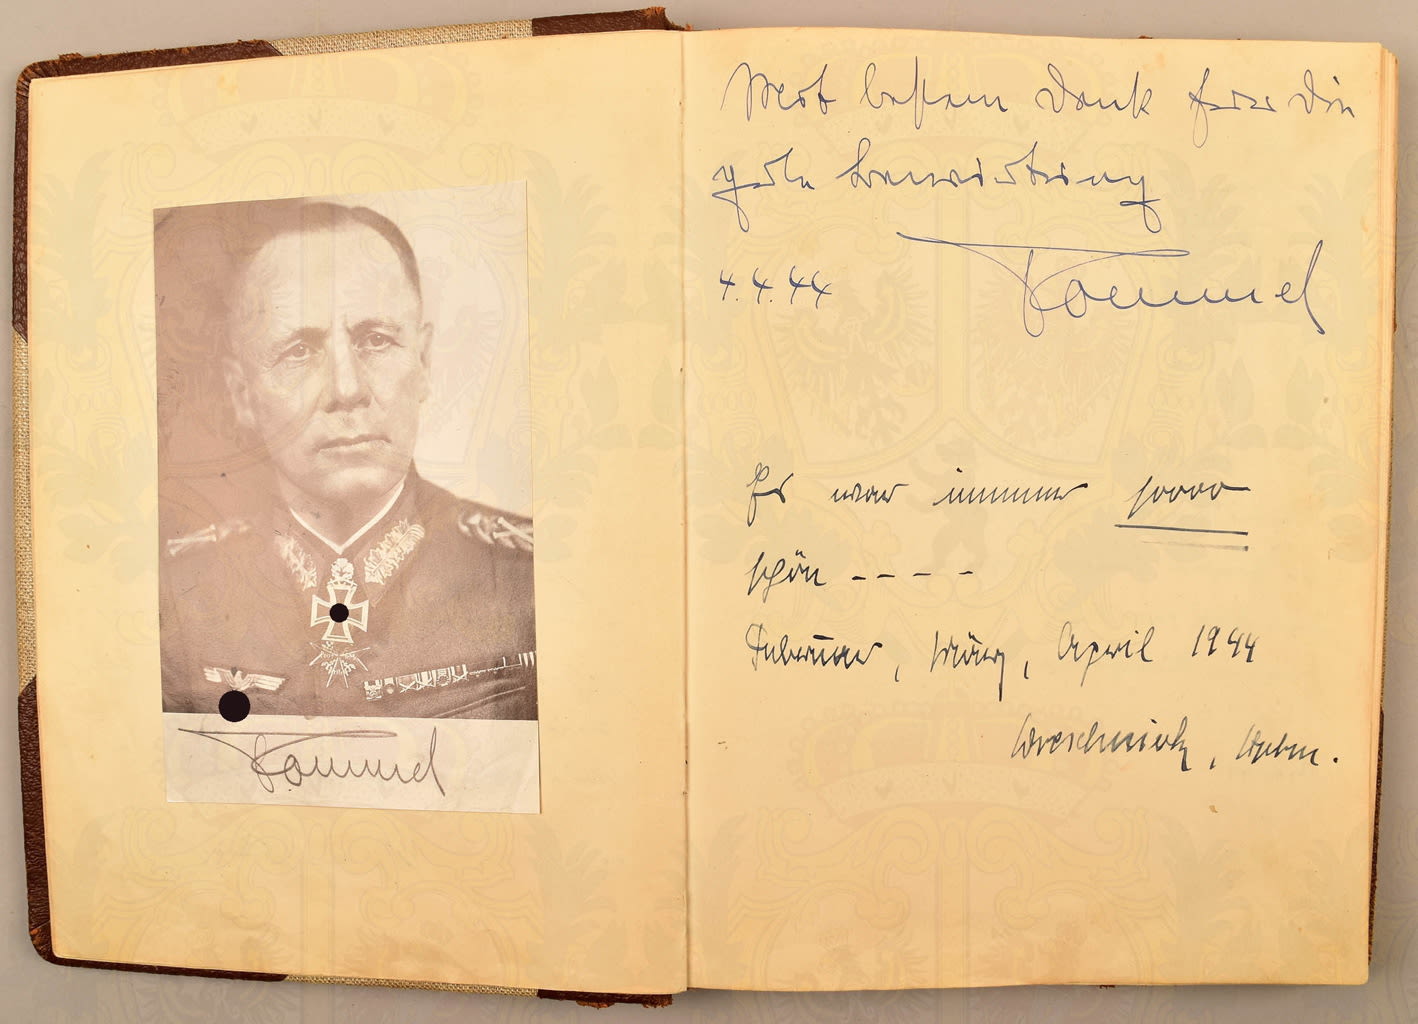 Rommel
Mit bestem Dank für die
gute Bewirtung
4.4.44
Rommel
Es war immer soooo
schön - - - -
Februar, März, April 1944
Hptm.